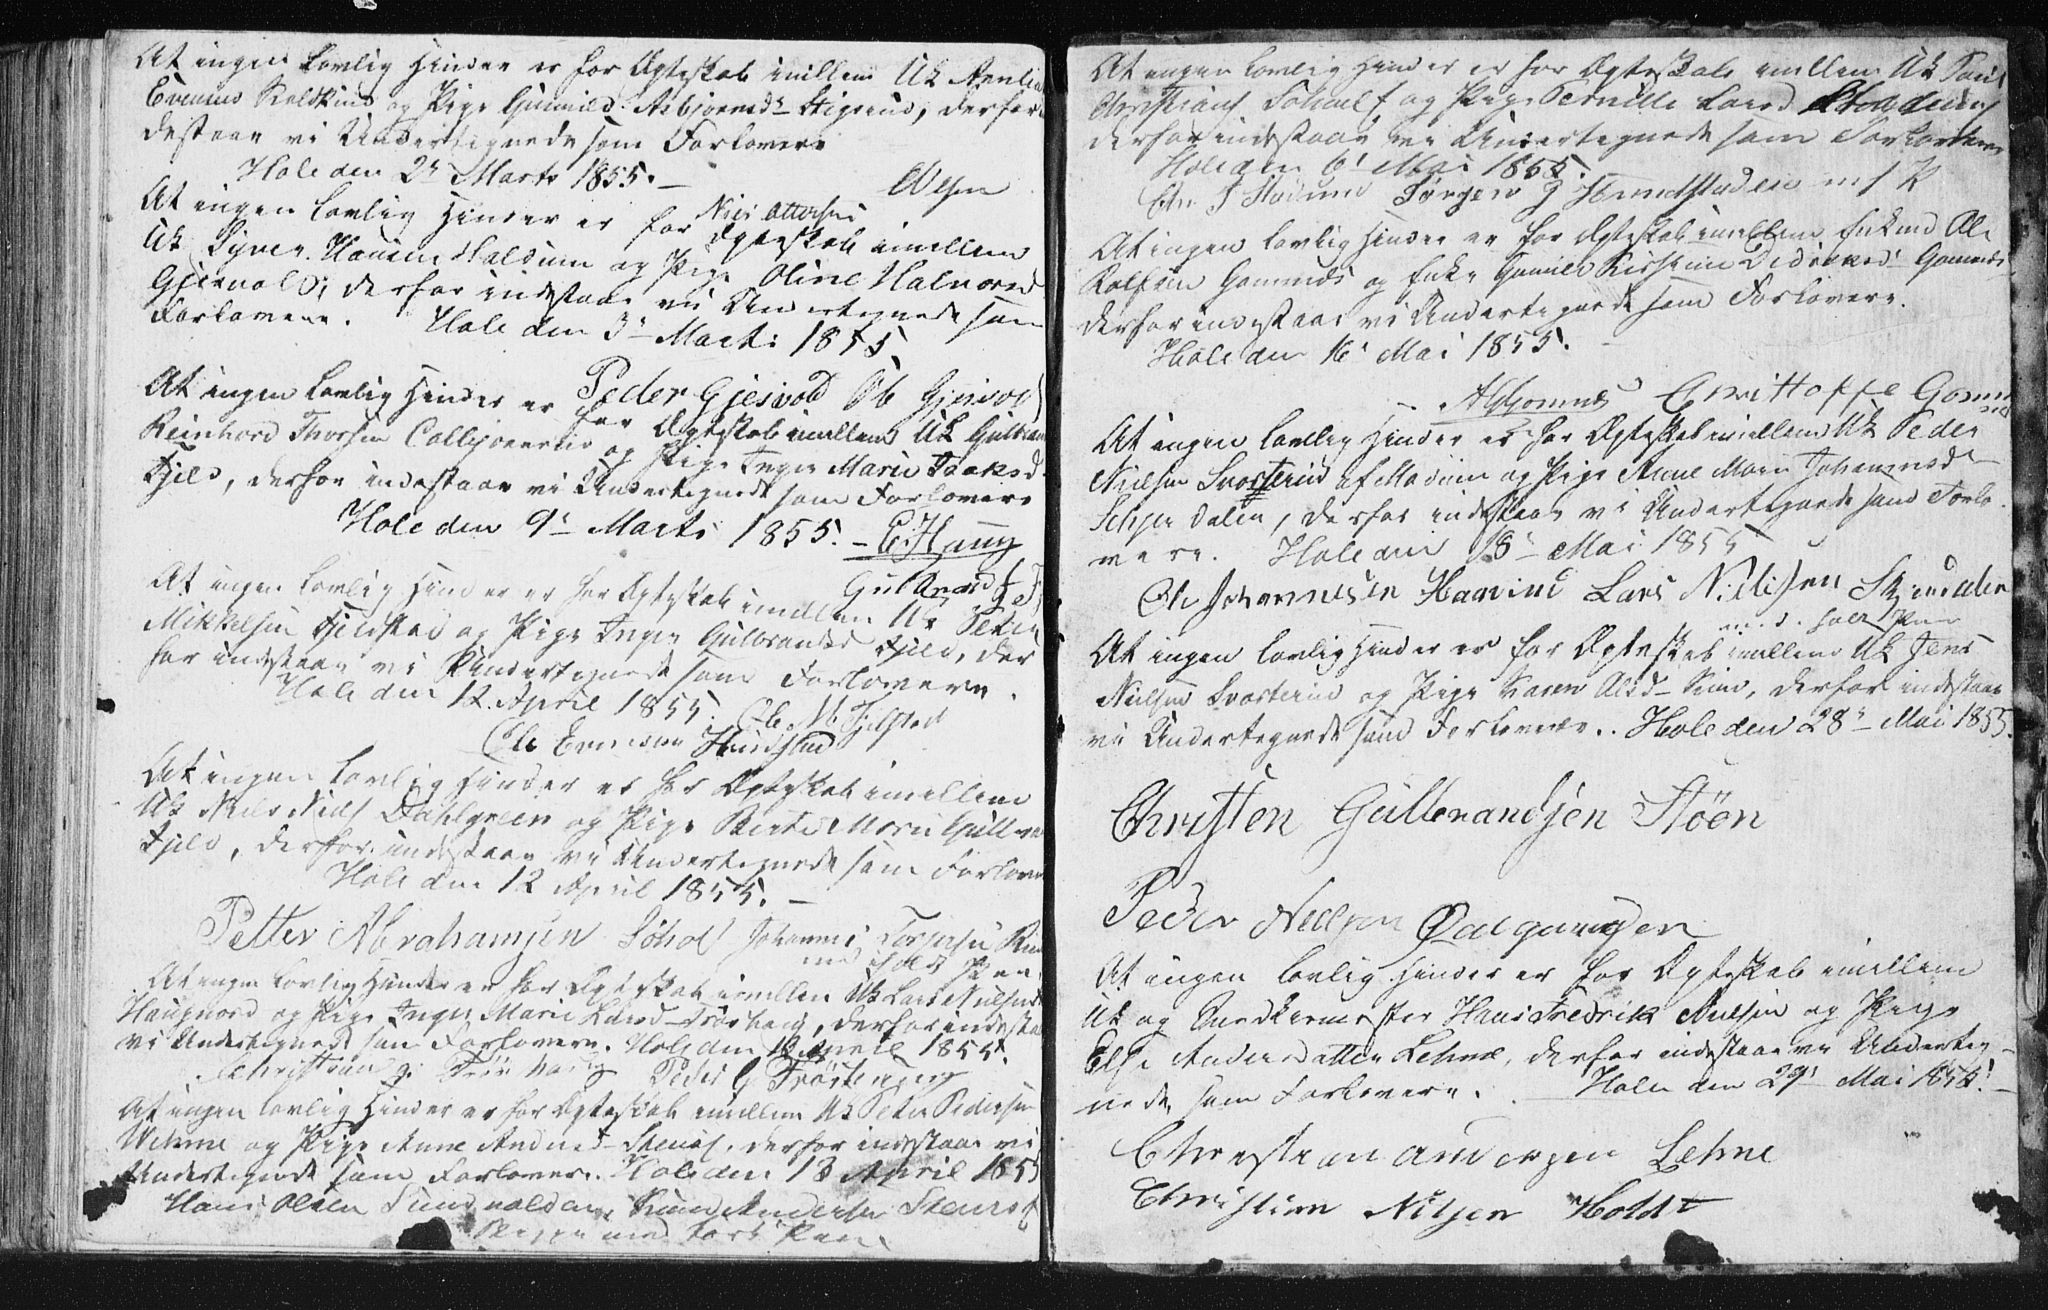 At ingen lovlig Hinder er for Ægteskab imellem Uk
Evensen og Pige Gunnild Asbjørnsd- Stigsrud, derfor
destaar vi Undertegnede som Forlovere
Hole den 2n Marts 1855. -
Olsen
Niels Ottersen
At ingen lovlig Hinder er for Ægteskab imellem
Uk Syver Hansen og Pige Oline Halvorsd
Gjesvold, derfor indestaar vi Undertegnede som
Forlovere. Hole den 3n Marts 1855
Peder Gjesvold Ob Gjesvold
At ingen lovlig Hinder er for Ægteskab imellem Uk Gulbrand
Reinhord Thorsen og Pige Inger Marie Isaksd
Fjeld, derfor indestaar vi Undertegnede som Forlovere
Hole den 9n Marts 1855. - E. Haug
Gulbrand
At ingen lovlig Hinder er for Ægteskab imellem Uk Peder
Mikkelsen Fjeldstad og Pige Inger Gulbrandsd Fjeld, der
for indestaar vi Undertegnede som Forlovere.
Hole den 12. April 1855. Ole M. Fjelstad
Ole Evensen Hundstad
At ingen lovlig Hinder er for Ægteskab imellem
Uk Niels Niels Dahlgreen og Pige Berte Marie Gulbr
Fjeld, derfor indestaar vi Undertegnede som Forlover
Hole den 12 April 1855. -
Petter Abrahamsen Søhol Johannes Torgersen
med holdt Pen
At ingen lovlig Hinder er for Ægteskab imellem Uk Lars Nielsen
Haugnord og Pige Inger Marie Larsd Frøshaug, derfor indestaa
vi Undertegnede som Forlovere. Hole den 13 April 1855.
Christian G. Frøshaug Peder G Frøshaug
At ingen lovlig Hinder er for Ægteskab imellem Uk Peter Pedersen
Wehme og Pige Anne Andersd- Steens, derfor indestaar vi
Undertegnede som Forlovere. Hole den 13 April 1855
Hans Olsen Sundvolden, Andersen
med Pen
At ingen lovlig Hinder er for Ægteskab imellem Uk Poul
Christians og Pige Pernille Larsd
derfor indestaar vi Undertegnede som Forlovere
Hole den 6' Mai 1855.
Jørgen J Hundstadeie m P
At ingen lovlig Hinder er for Ægteskab imellem Enkmd Ole
Rolfsen Gomnæs og Enke Gunild Kirstine Didriksd- Gomnæs
derfor indestaar vi Undertegnede som Forlovere.
Hole den 16' Mai 1855. -
AGomnæs Christoffe Gomn
æs
At ingen lovlig Hinder er for Ægteskab imellem Uk Peder
Nielsen Svarterud af Modum og Pige Anne Marie Johannesd-
Selje dalen, derfor indestaar vi Undertegnede som Forlo-
vere. Hole den 18n Mai 1855
Ole Johannesen Hamrind Lars Nielsen
m. d. holdt Pen
At ingen lovlig Hinder er for Ægteskab imellem Uk Jens
Nielsen Svarterud og Pige Karen Olsd- , derfor indestaar
vi Undertegnede som Forlovere. Hole den 28n Mai 1855.
Christen Gulbrandsen Støen
Peder Nielsen
At ingen lovlig Hinder er for Ægteskab imellem
Uk og Snedkermester Hans Fredrik Nielsen og Pige
Else Andersdatter Lehne, derfor indestaar vi Underteg-
nede som Forlovere. Hole den 29' Mai 1855. -
Christian Andersen Lehne
Christian Nilsen Holdt